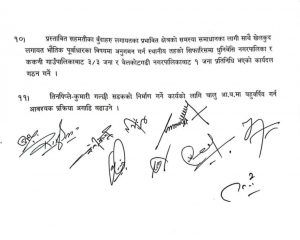 १०) प्रस्तावित सहमतीका बुँदाहरु लगायतका प्रभावित क्षेत्रको समस्या समाधानका लागी साथै खेलकुद
लगायत भौतिक पूर्वाधारका विषयमा अनुगमन गर्न स्थानीय तहको सिफारिसमा धुनिबेसि नगरपालिका र
ककनी गाउँपालिकाबाट ३/३ जना र बेलकोटगढी नगरपालिकाबाट १ जना प्रतिनिधि भएको कार्यदल
गठन गर्ने ।
११) तिनपिप्ले-कुमारी गल्छी सडकको निर्माण गर्ने कार्यको लागि चालु आ.ब.मा बहुवर्षिय गर्न
आवश्यक प्रक्रिया अगाडि बढाउने ।